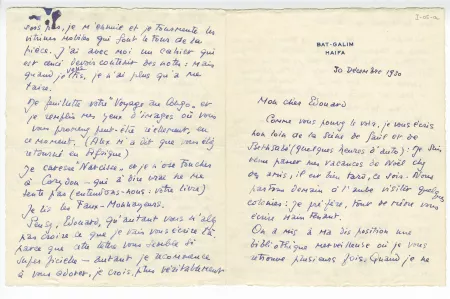 BAT-GALIM
HAIFA
30 Décembre 1930
Mon cher Edouard
Comme vous pouvez le voir, je vous écris
non loin de la Reine de Saba et de
Bethsabé (quelques heures d'auto): Je suis
venu passer mes vacances de Noël chez
des amis, il est bien tard, ce soir. Nous
partons demain à l'aube visiter quelques
colonies: je préfère, tout de même vous
écrire maintenant.
On a mis à ma disposition une
bibliothèque merveilleuse où je vous
retrouve plusieurs fois. Quand je ne
sors pas, je m'ennuie et je tourmente les
vitrines mobiles qui font le tour de la
pièce. J'ai avec moi un cahier qui
est censé devoir contenir des notes: mais
quand je vous lis, je n'ai plus qu'à me
taire.
Je feuillette votre "Voyage au Congo" et
je remplis mes yeux d'images où vous
vous promenez peut-être réellement, en
ce moment. (Alix m'a dit que vous étiez
retourné en Afrique)
Je caresse "Narcisse" et je n'ose toucher
à Corydon - qui à bien vrai ne me
tente pas (entendons-nous: votre livre)
Je lis les Faux-Monnayeurs.
Edouard, qu'autant vous n'allez
pas croire ce que je vais vous écrire là
parce que cette lettre vous semble si
superficielle - autant je recommence
à vous adorer, je crois, plus véritablement